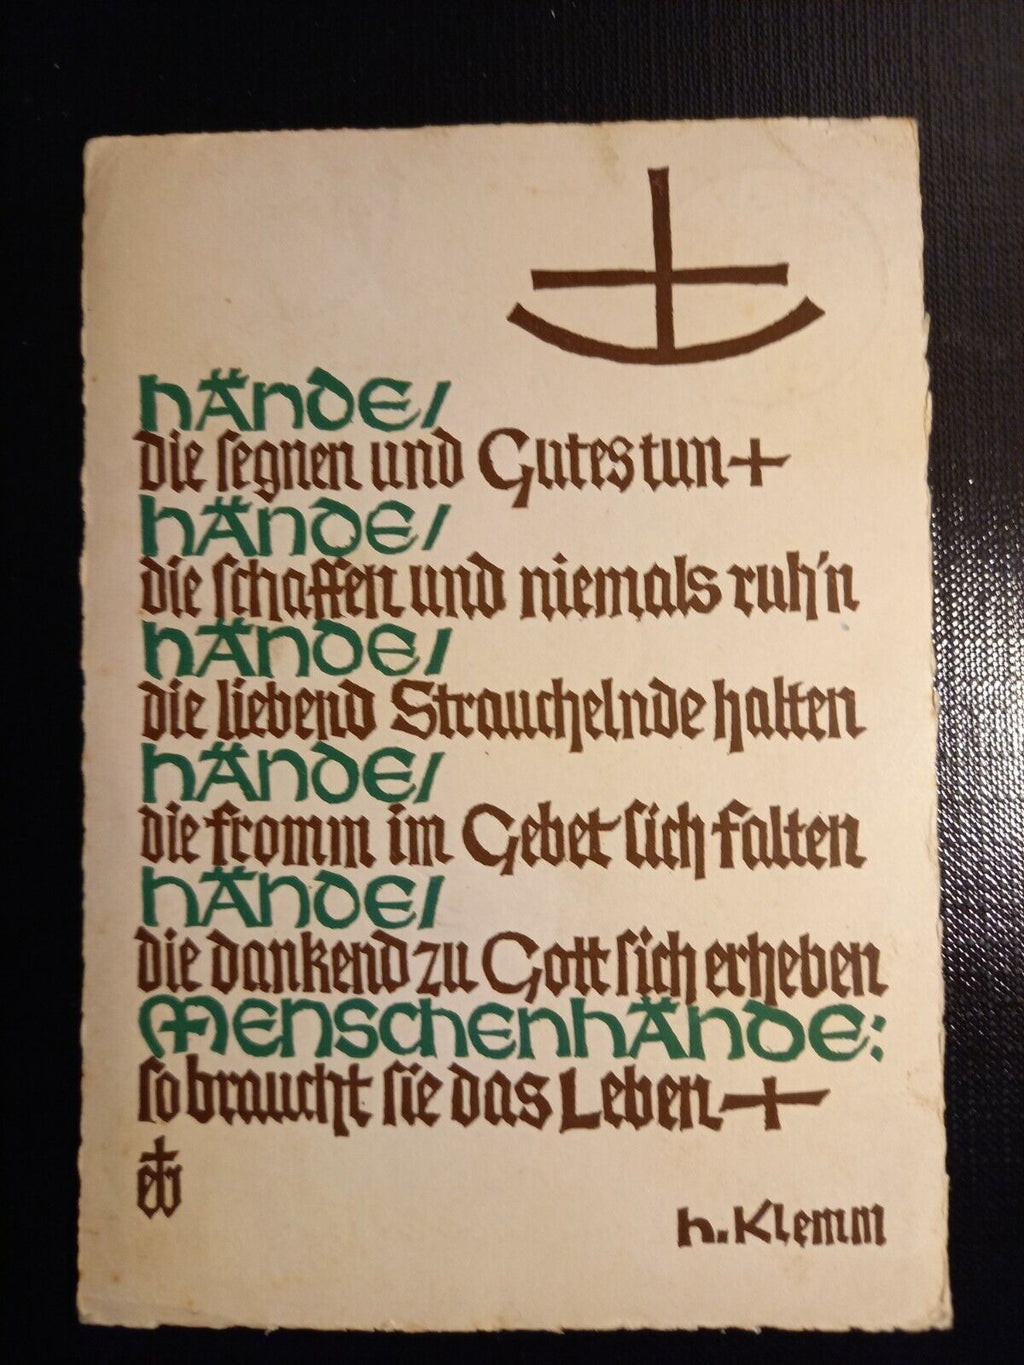 Hände/
die segnen und Gutes tun +
Hände/
die schaffen und niemals ruh'n
Hände/
die liebend Strauchelnde halten
Hände/
die fromm im Gebet sich falten
Hände/
die dankend zu Gott sich erheben
Menschenhände:
so braucht sie das Leben +
h. Klemm